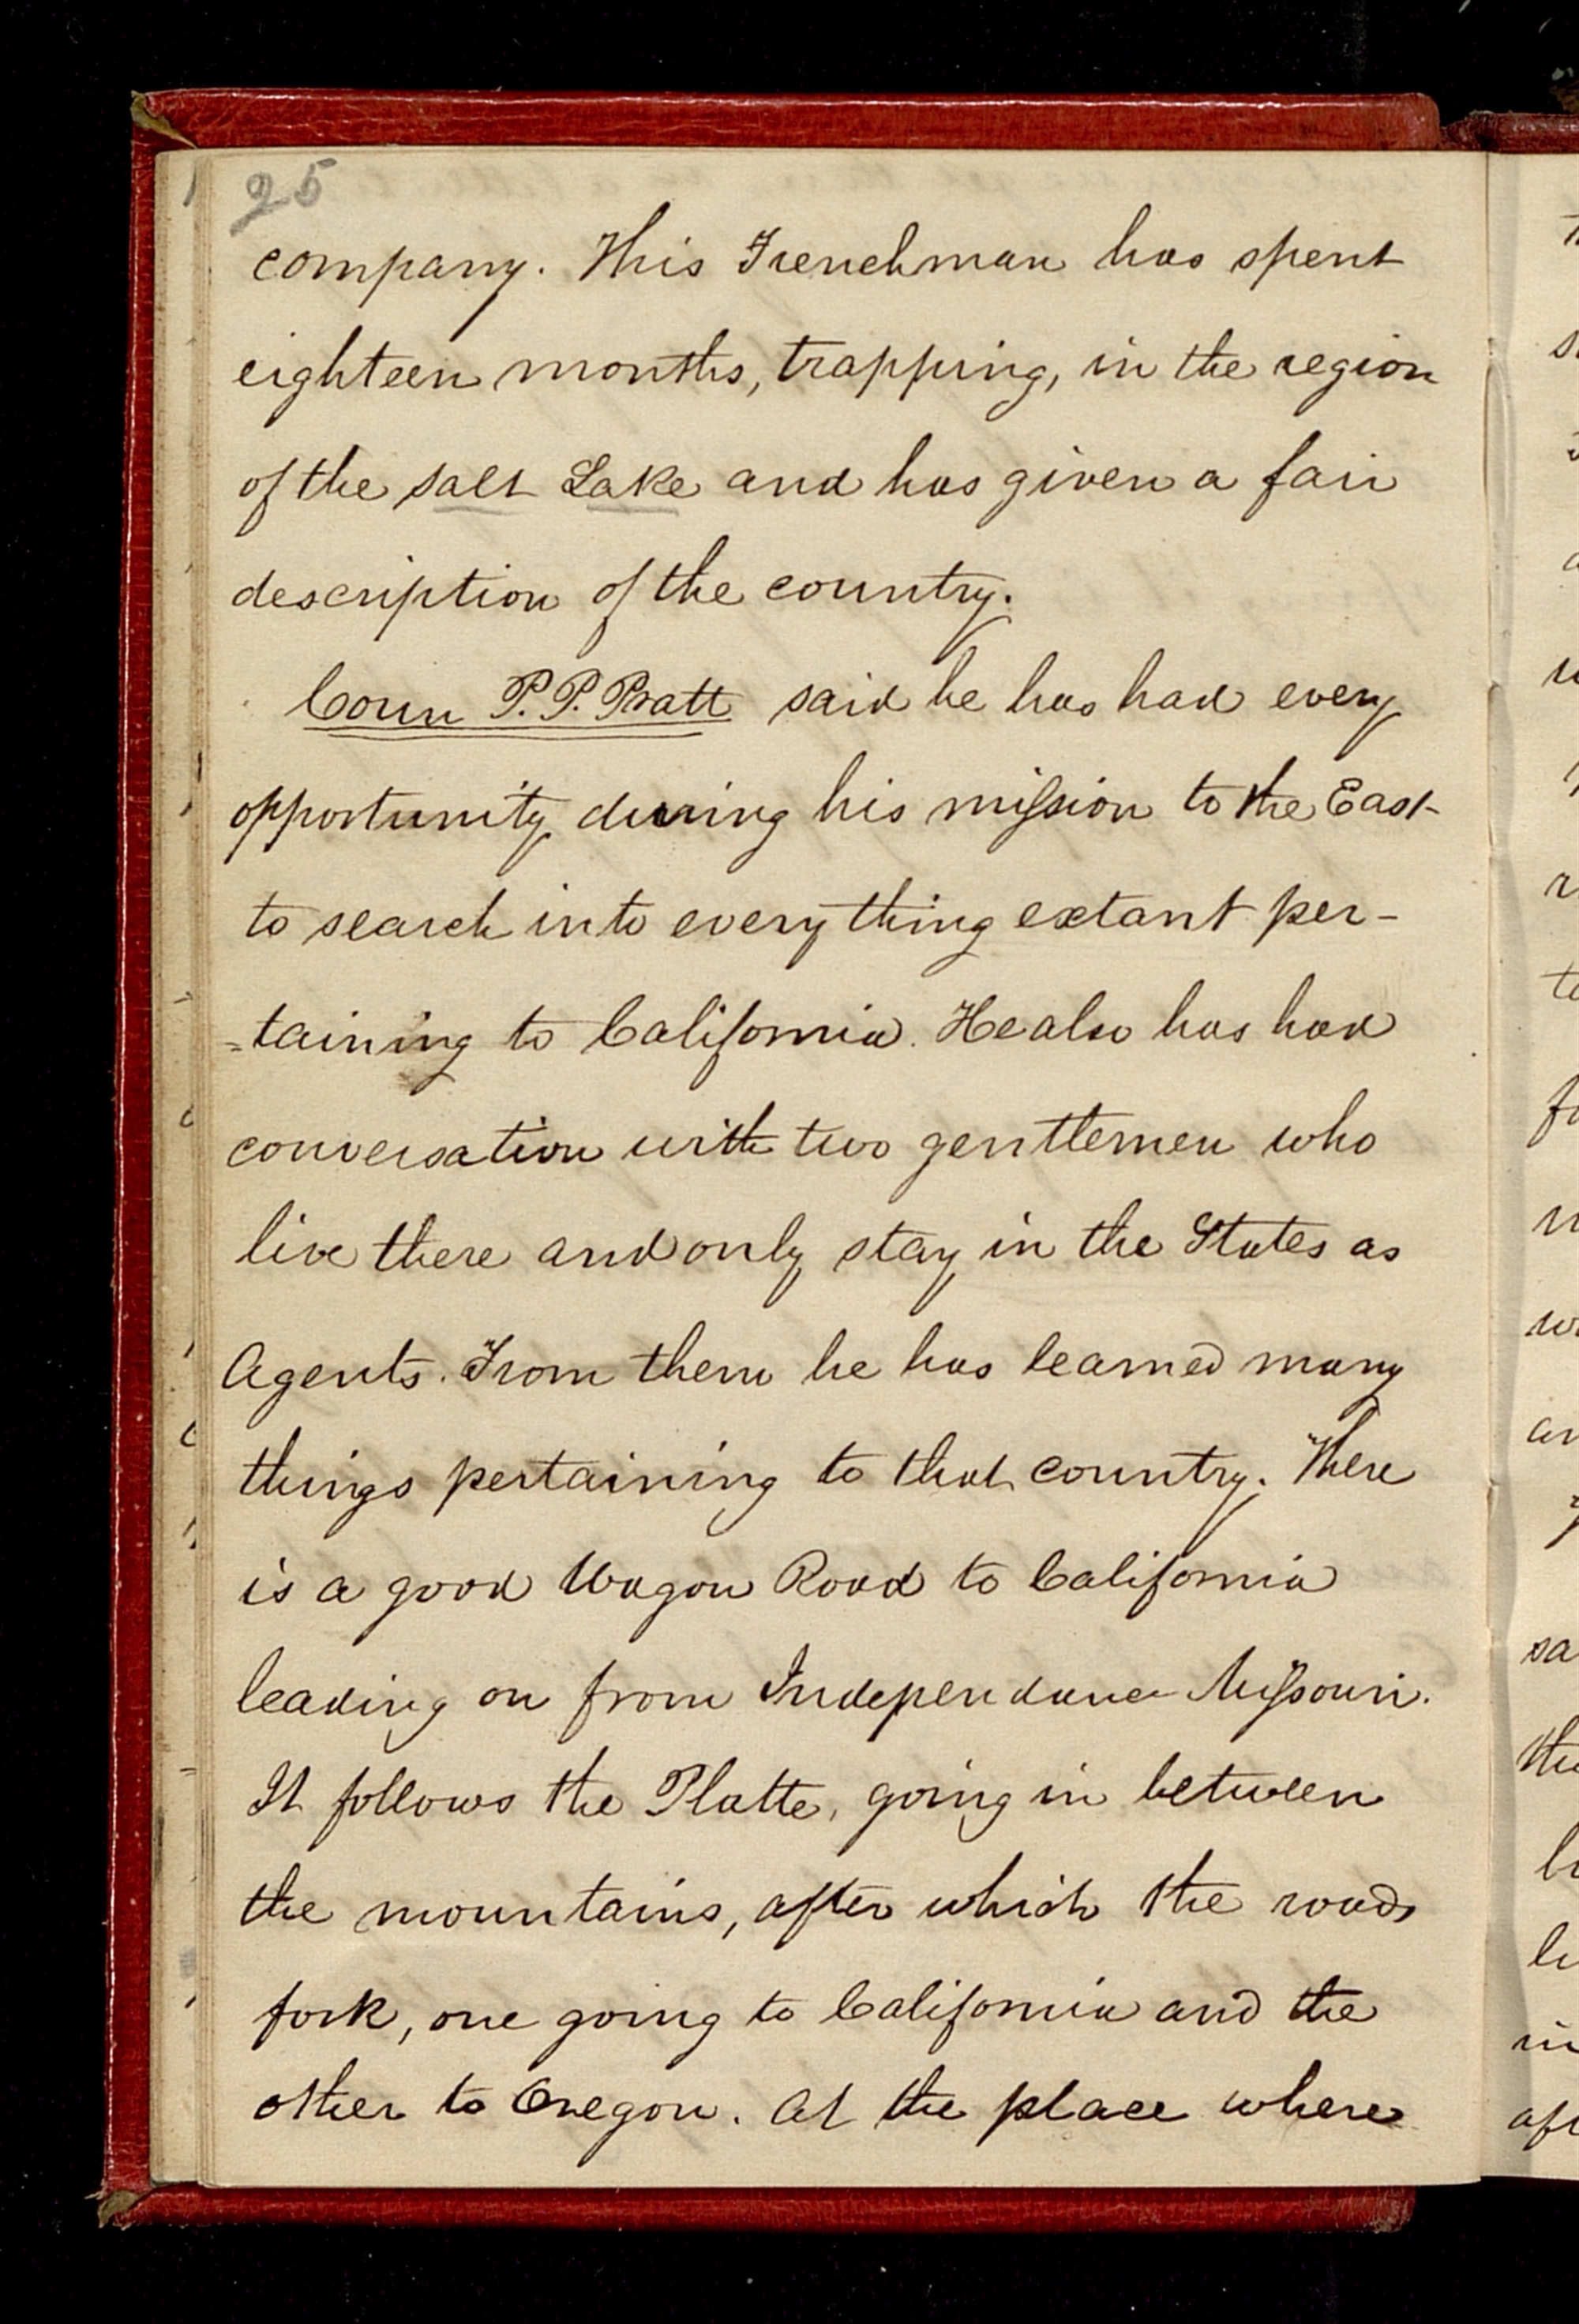 25
company. This Frenchman has spent
eighteen months, trapping, in the region
of the salt Lake and has given a fair
description of the country.
Coun P. P. Pratt said he has had every
opportunity during his mission to the East
to search into every thing extant per-
=taining to California. He also has had
conversation with two gentlemen who
live there and only stay in the States as
Agents. From them he has learned many
things pertaining to that country. There
is a good Wagon Road to California
leading on from Independance Missouri.
It follows the Platte, going in between
the mountains, after which the roads
fork, one going to California and the
other to Oregon. At the place where